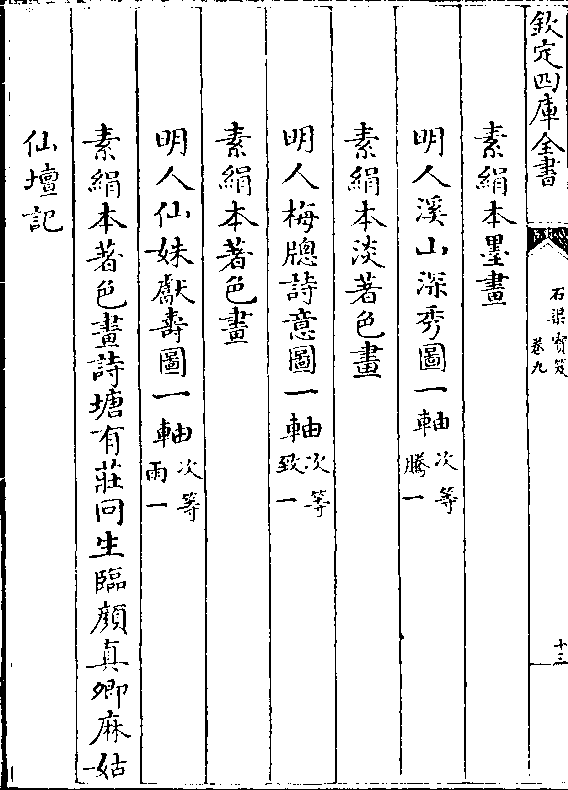 欽定四庫全書
石渠寶笈
卷九
十三
素絹本墨畫
明人溪山深秀圖一軸次等騰一
素絹本淡著色畫
明人梅牕詩意圖一軸次等致一
素絹本著色畫
明人仙姝獻壽圖一軸次等雨一
素絹本著色畫詩塘有莊冋生臨顔真卿麻姑
仙壇記